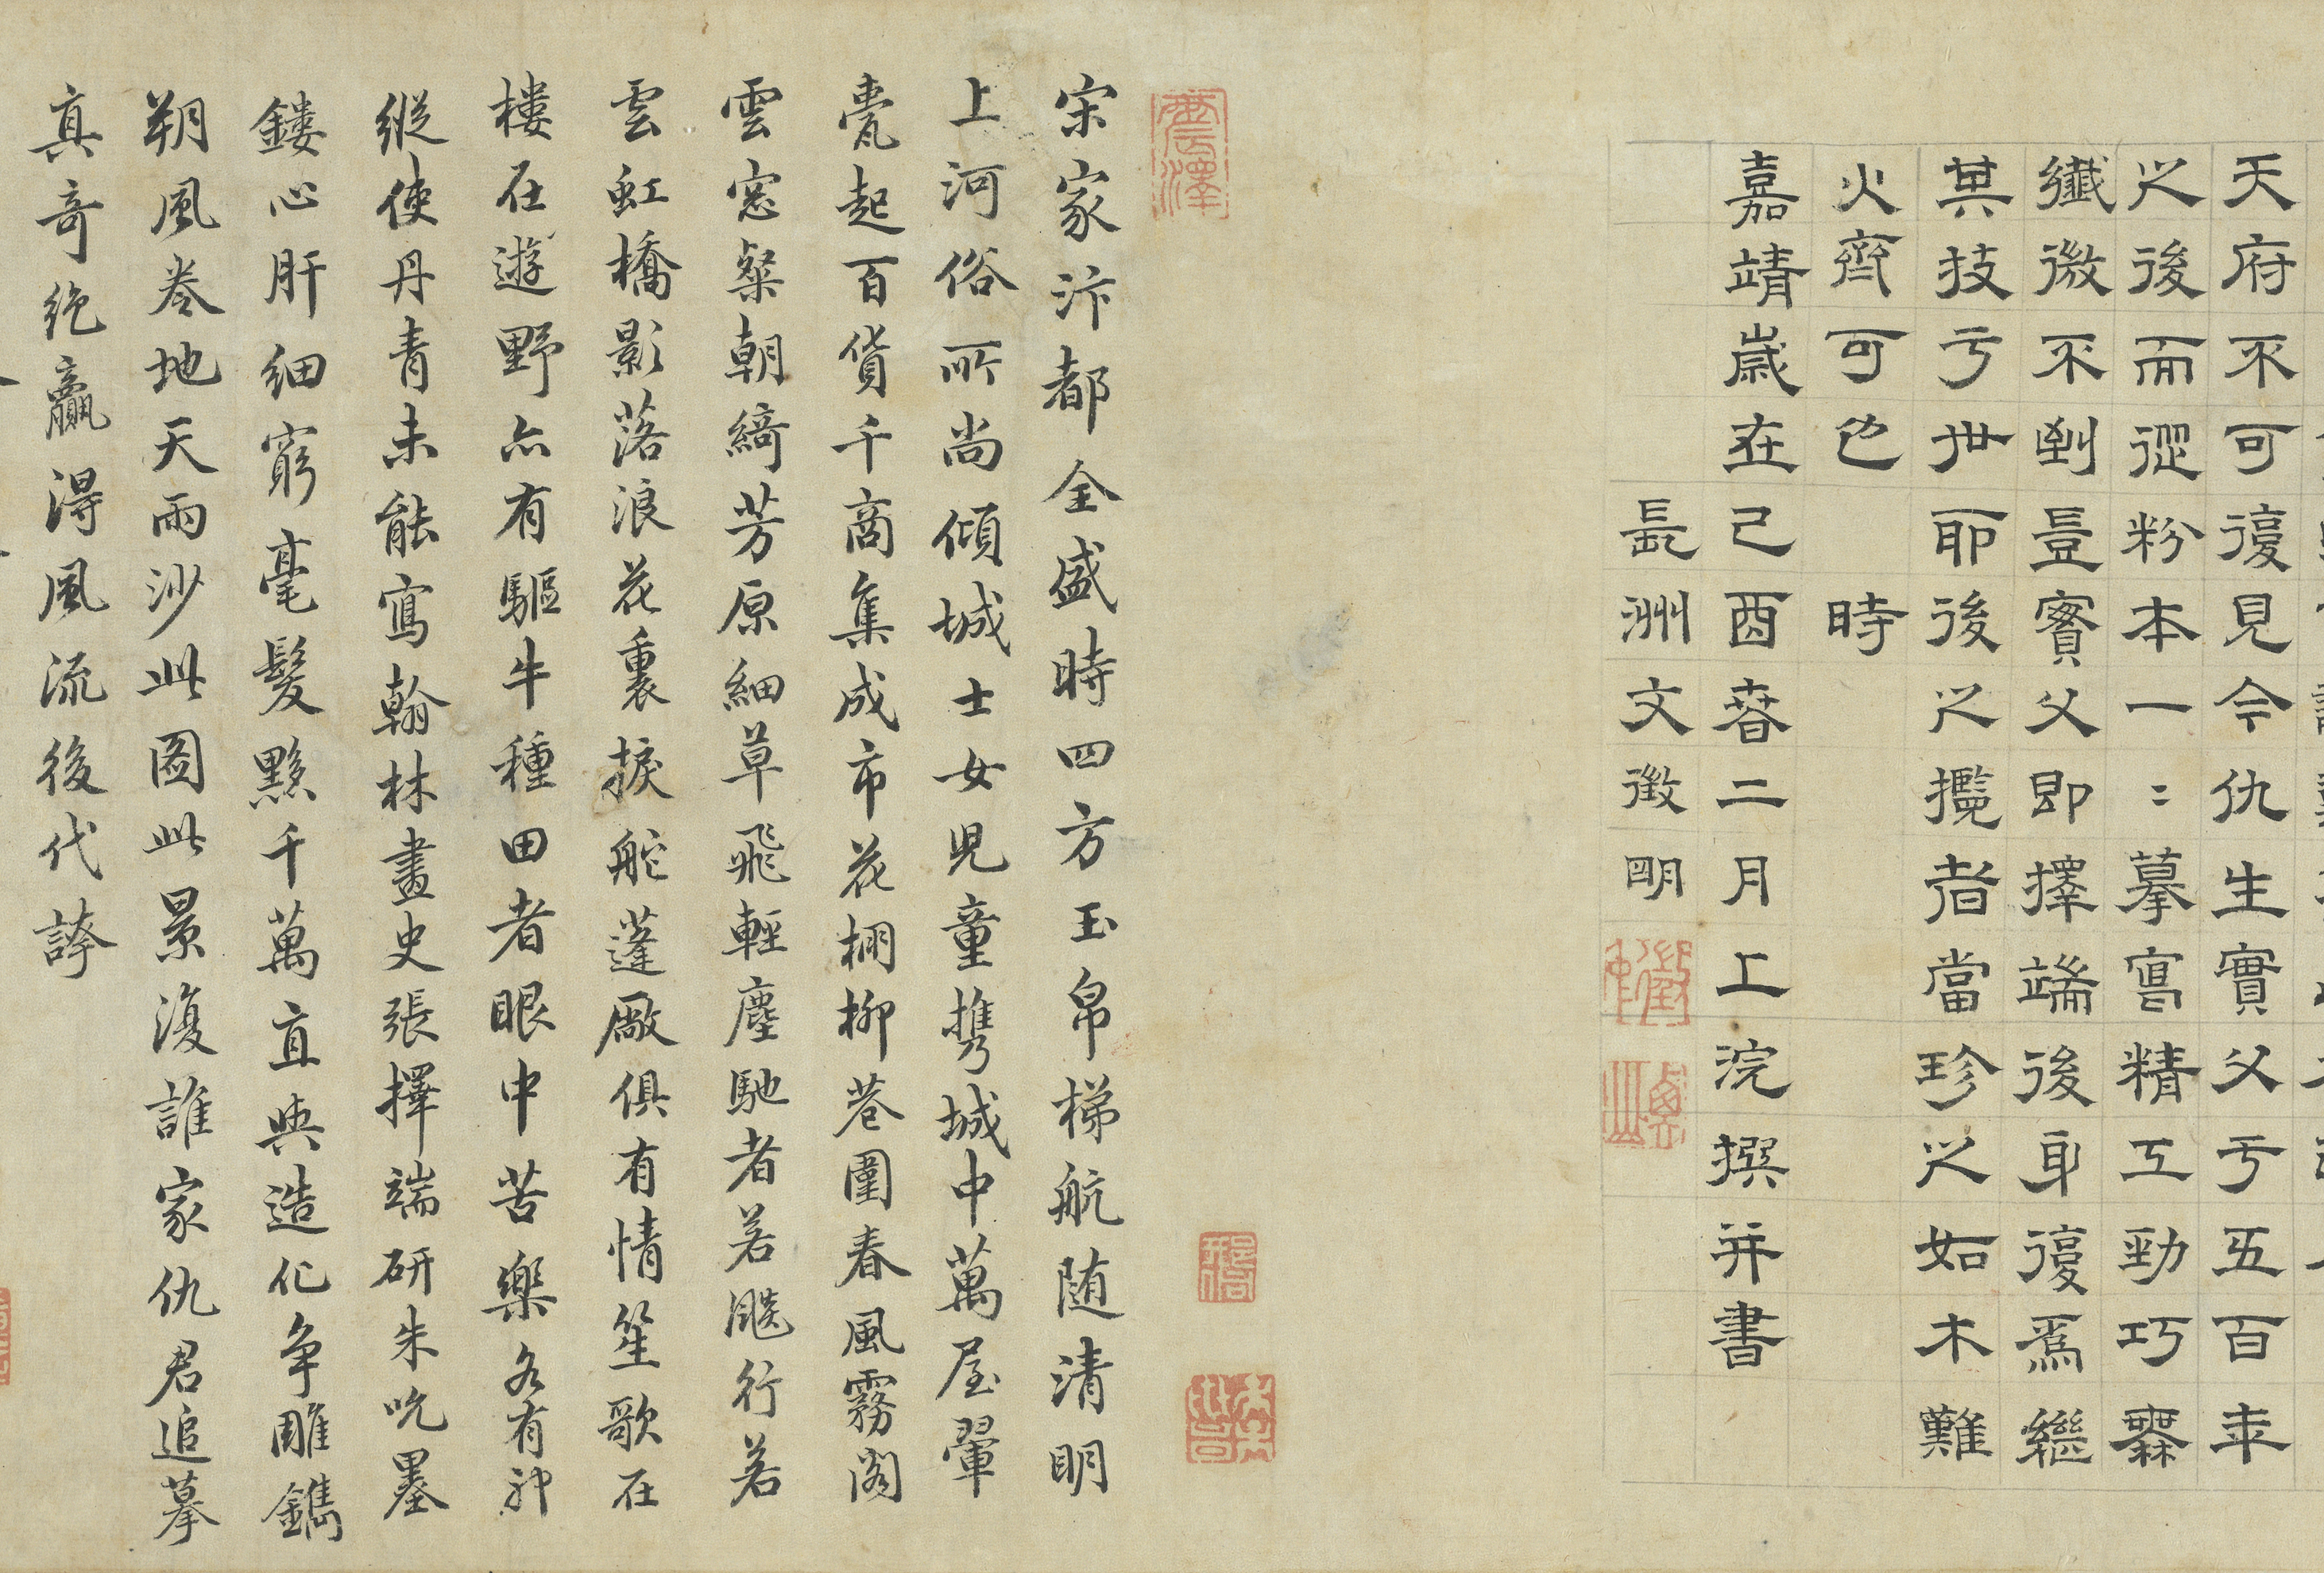 天府不可復見今仇生實父于五百年
之後而從粉本一二摹寫精工勁巧纍
纖微不剉豈賓父即擇端後身復爲繼
其技于世耶後之攬者當珍之如木難
火齊可也 時
嘉靖歲在己酉春二月上浣撰并書
長洲文徵明
震澤
宋家汴都全盛時四方玉帛梯航随清明
上河俗所尚傾城士女児童携城中萬屋翬
甍起百貨千商集成市花棚柳巷圍春風霧閣
雲窓粲朝綺芳原細草飛輕塵馳者若飈行若
雲虹橋影落浪花裏捩舵蓬廠俱有情笙歌在
樓在遊野亦有驅牛種田者眼中苦樂各有
縱使丹青未能寫翰林畫史張擇端研朱吮墨
鏤心肝細窮毫髮夥千萬直與造化争雕鐫
朔風卷地天雨沙此图此景復誰家仇君追摹
真奇絶贏得風流後代誇